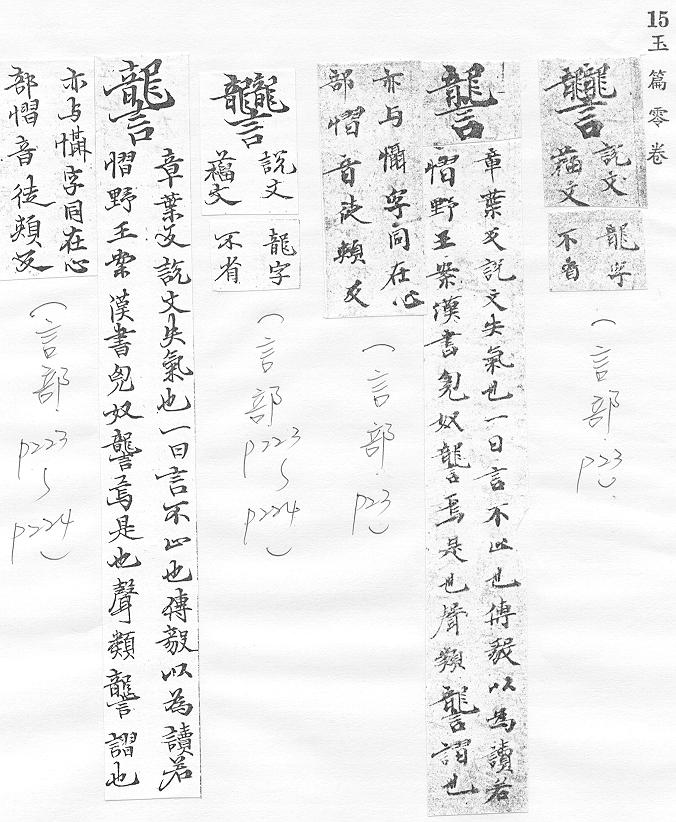 15玉篇零卷
𧮩
說文
籒文
龍字
不省
(言部.P23)
讋
章葉反說文失氣也一曰言不止也傅毅以為讀若
慴野王案漢書匈奴讋焉是也聲類讋謵也
亦与懾字同在心
部慴音徒頰反
(言部.P23)
𧮩
說文
籒文
龍字
不省
(言部P223~P224)
讋
章葉反說文失氣也一曰言不止也傅毅以為讀若
慴野王案漢書匈奴讋焉是也聲類讋謵也
亦与懾字同在心
部慴音徒頰反
(言部.P223~P224)